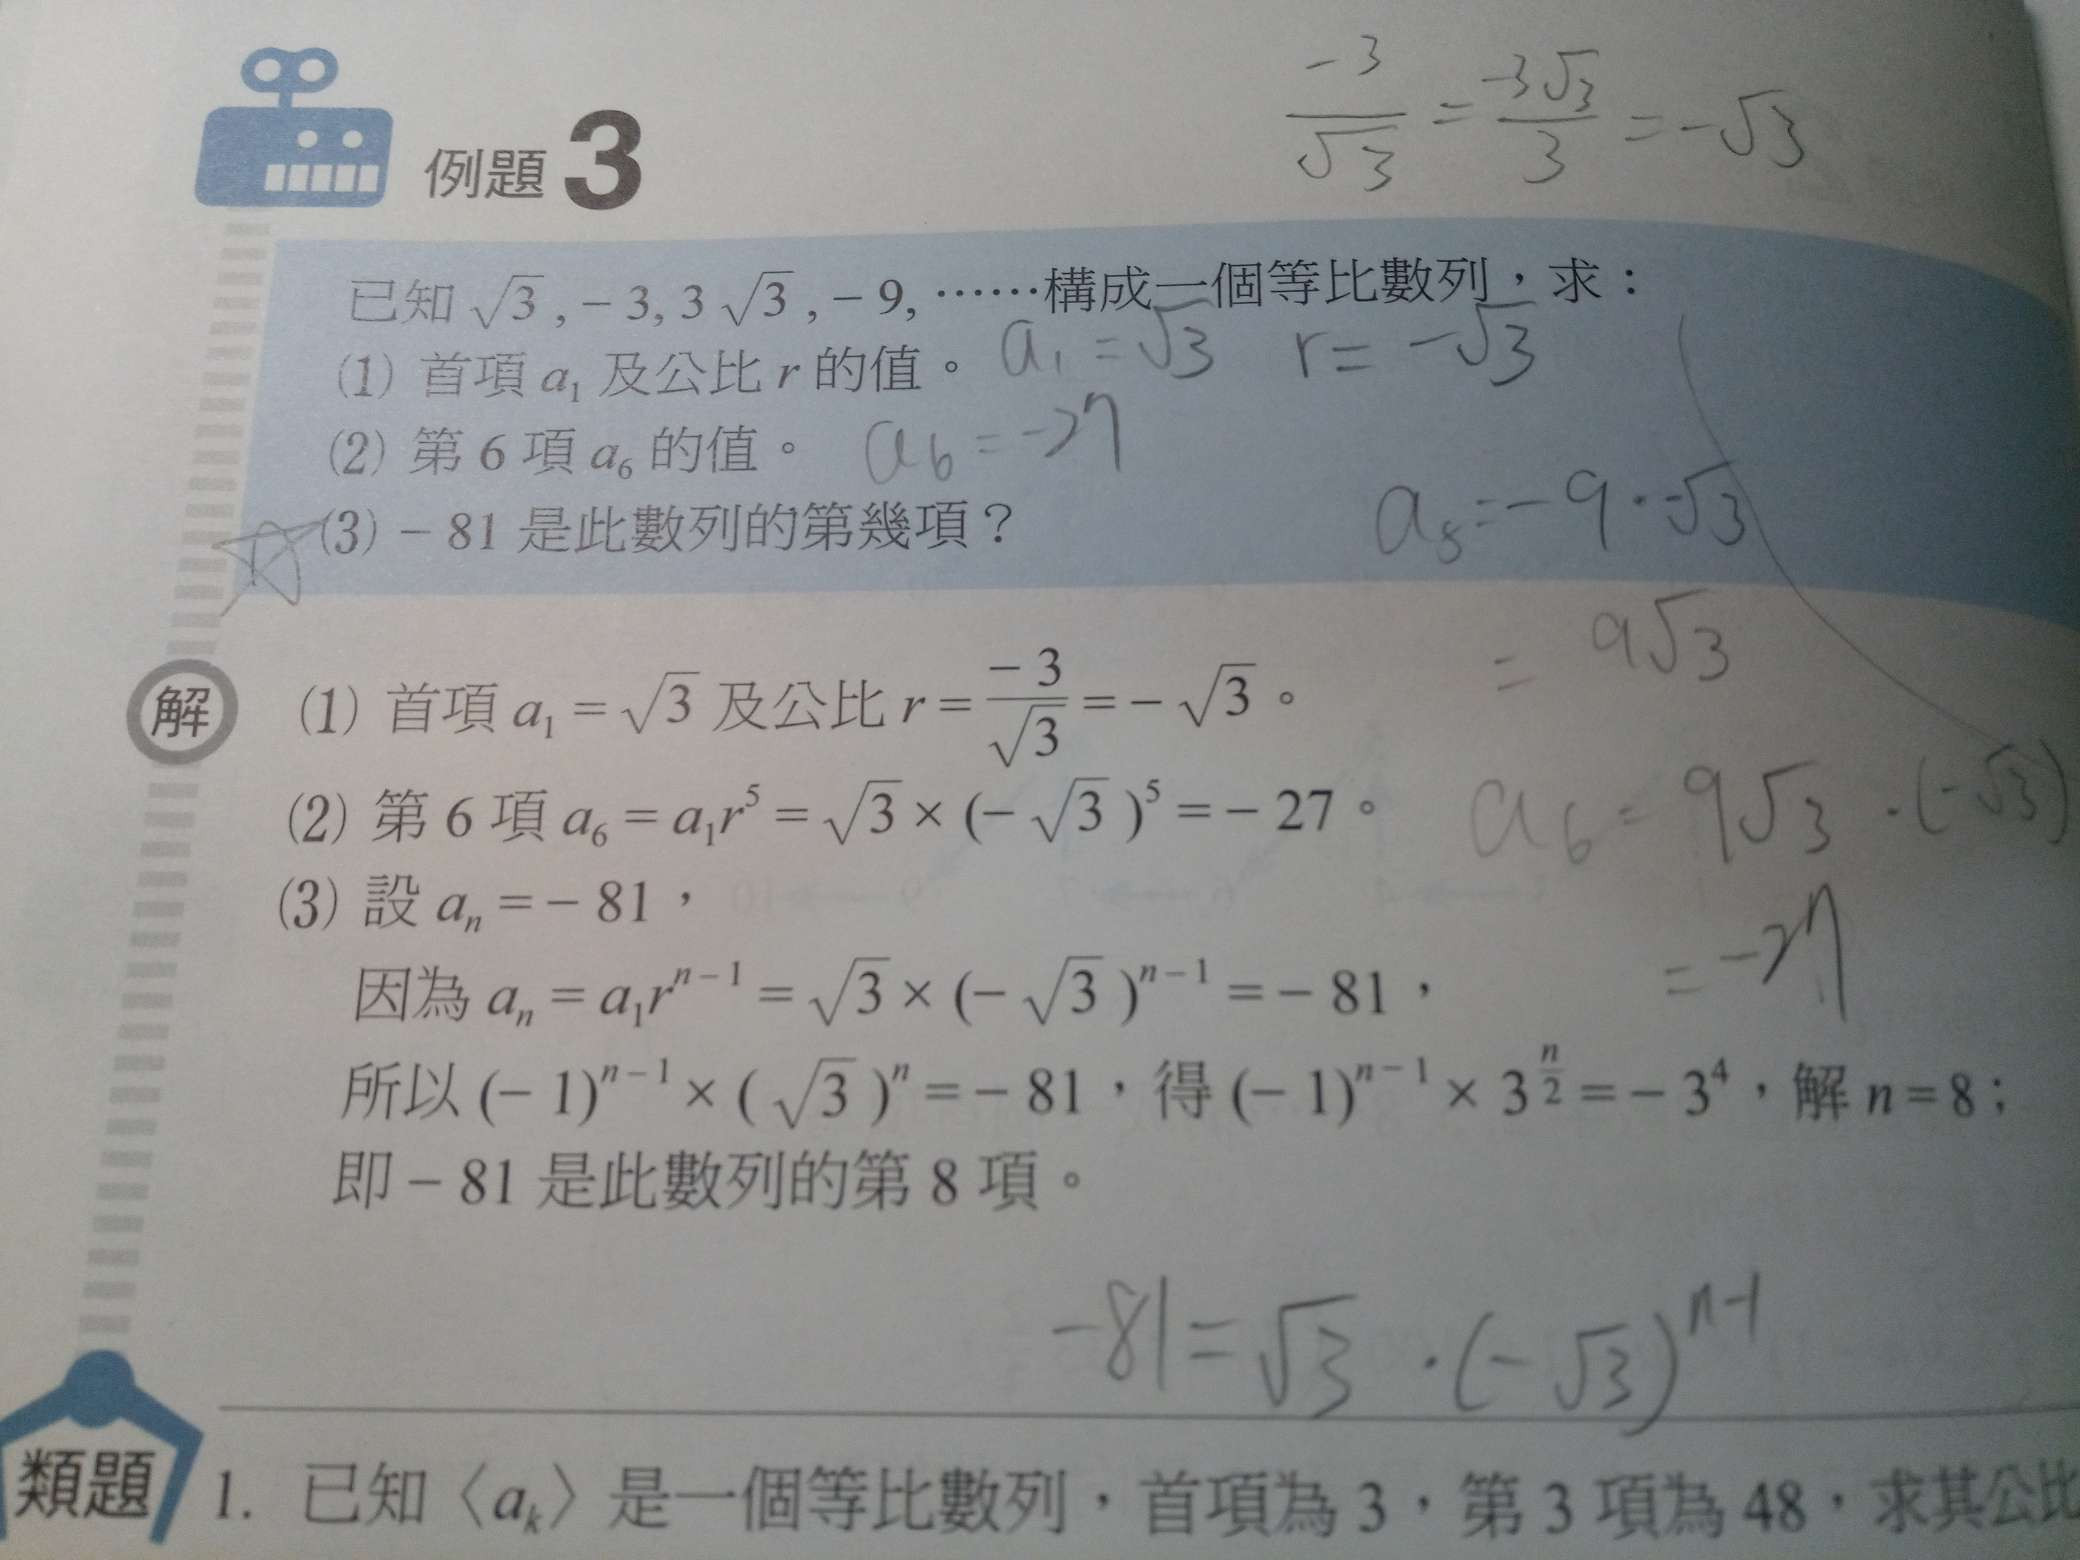 -3/√3 = -3√3/3 = -√3
例題 3
已知 √3 , − 3, 3 √3 , − 9, ⋯⋯構成一個等比數列，求：
(1) 首項 a₁ 及公比 r 的值。 a₁ = √3 r = -√3
(2) 第 6 項 a₆ 的值。 a₆ = -27
(3) − 81 是此數列的第幾項？
a₅ = -9·-√3
= 9√3
解
(1) 首項 a₁ = √3 及公比 r = −3/√3 = − √3 。
(2) 第 6 項 a₆ = a₁r⁵ = √3 × (− √3 )⁵ = − 27。
a₆ = 9√3 ·(-√3)
= -27
(3) 設 aₙ = − 81，
因為 aₙ = a₁rⁿ⁻¹ = √3 × (− √3 )ⁿ⁻¹ = − 81，
所以 (− 1)ⁿ⁻¹ × ( √3 )ⁿ = − 81，得 (− 1)ⁿ⁻¹ × 3^(n/2) = − 3⁴，解 n = 8；
即 − 81 是此數列的第 8 項。
-81 = √3 ·(-√3)ⁿ⁻¹
類題
1. 已知〈aₖ〉是一個等比數列，首項為 3，第 3 項為 48，求其公比